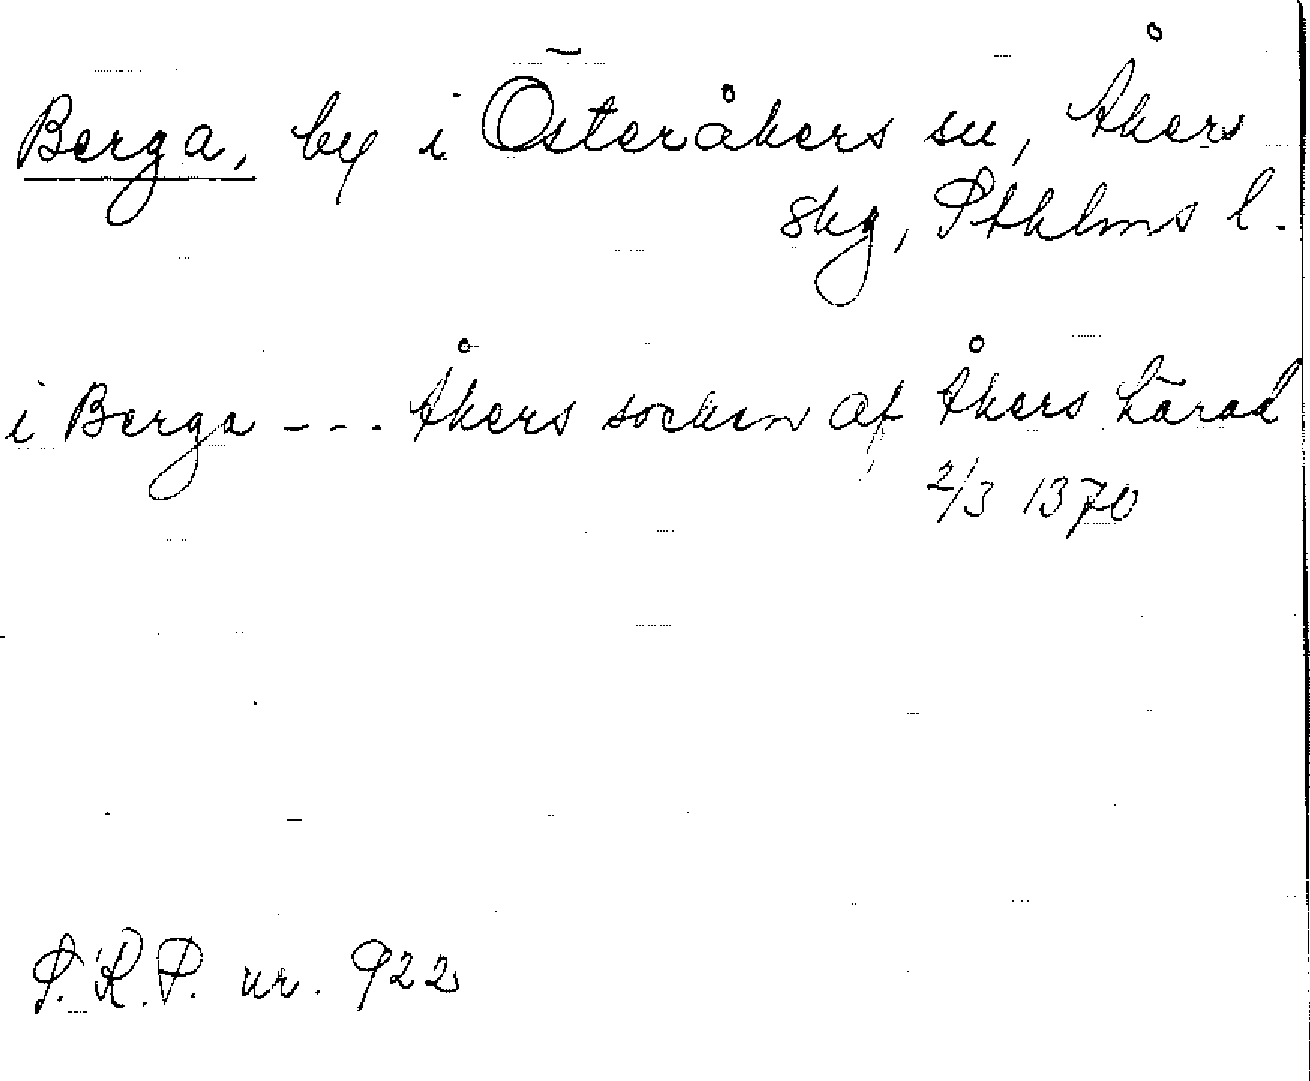 Berga, by i Österåkers sn, Åkers
skg, Sthlms l.
i Berga --- Åkers sockn af Åkers härad
2/3 1370
S.R.P. nr. 922